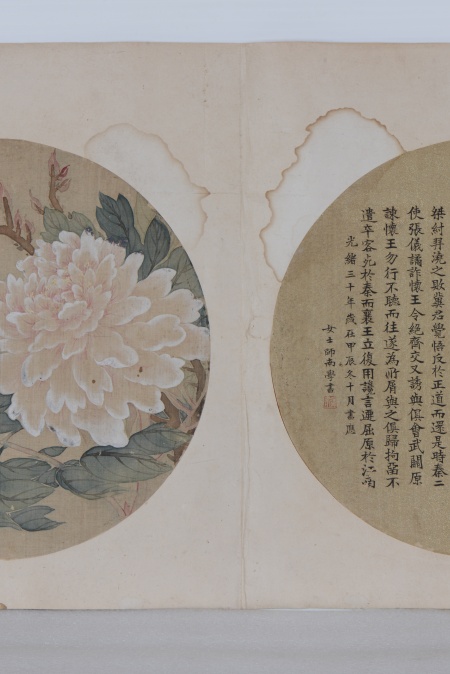 桀紂羿澆之敗冀君覺悟反於正道而還是時秦二
使張儀譎詐懷王令絕齊交又誘與俱會武關原
諫懷王勿行不聽而往遂為所脅與之俱歸拘留不
遣卒客死於秦而襄王立復用讒言遷屈原於江南
光緒三十年歲在甲辰冬十月書應
女士師尚學書